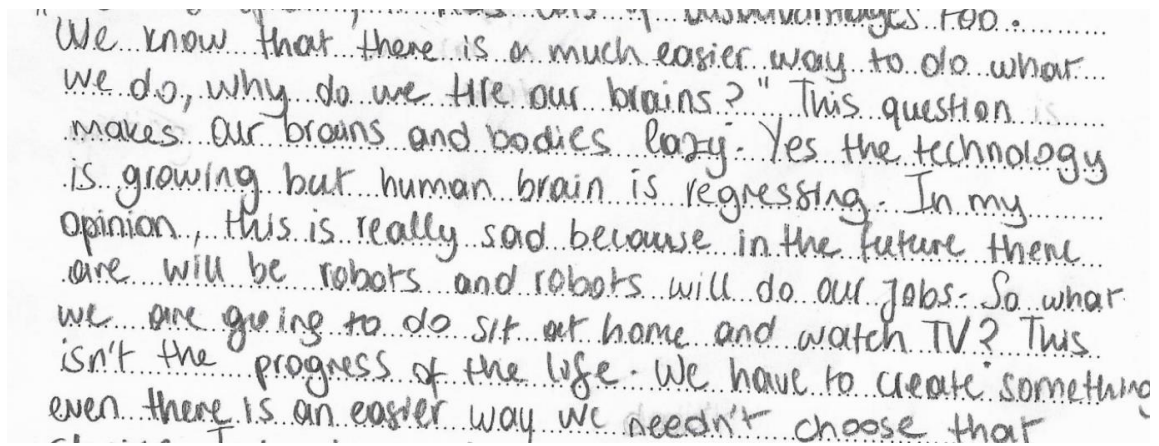 disadvantages too.
We know that there is a much easier way to do what
we do, why do we tire our brains?" This question
makes our brains and bodies lazy. Yes the technology
is growing but human brain is regressing. In my
opinion, this is really sad because in the future there
are will be robots and robots will do our jobs. So what
we are going to do sit at home and watch TV? This
isn't the progress of the life. We have to create something
even there is an easier way we needn't choose that